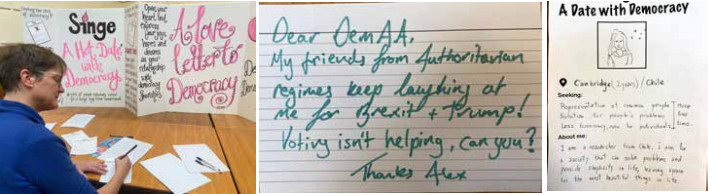 Singe
A Hot Date
with
Democracy
Open your
heart, and
express
your joys,
hopes and
dreams
in your
relationship
with
democracy
A love
letter to
Democracy
Dear DemAA,
My friends from Authoritarian
regimes keep laughing at
me for Brexit + Trump!
Voting isn't helping, can you?
Thanks Alex
A Date with Democracy
Cambridge (2 years) / Chile
Seeking:
Representation of common people
Solution for people's problems
Less bureaucracy, more for individuals
About me:
I am a researcher from Chile. I aim for
a society that can solve problems and
provide simplicity in life, leaving space
for the most beautiful things in life.